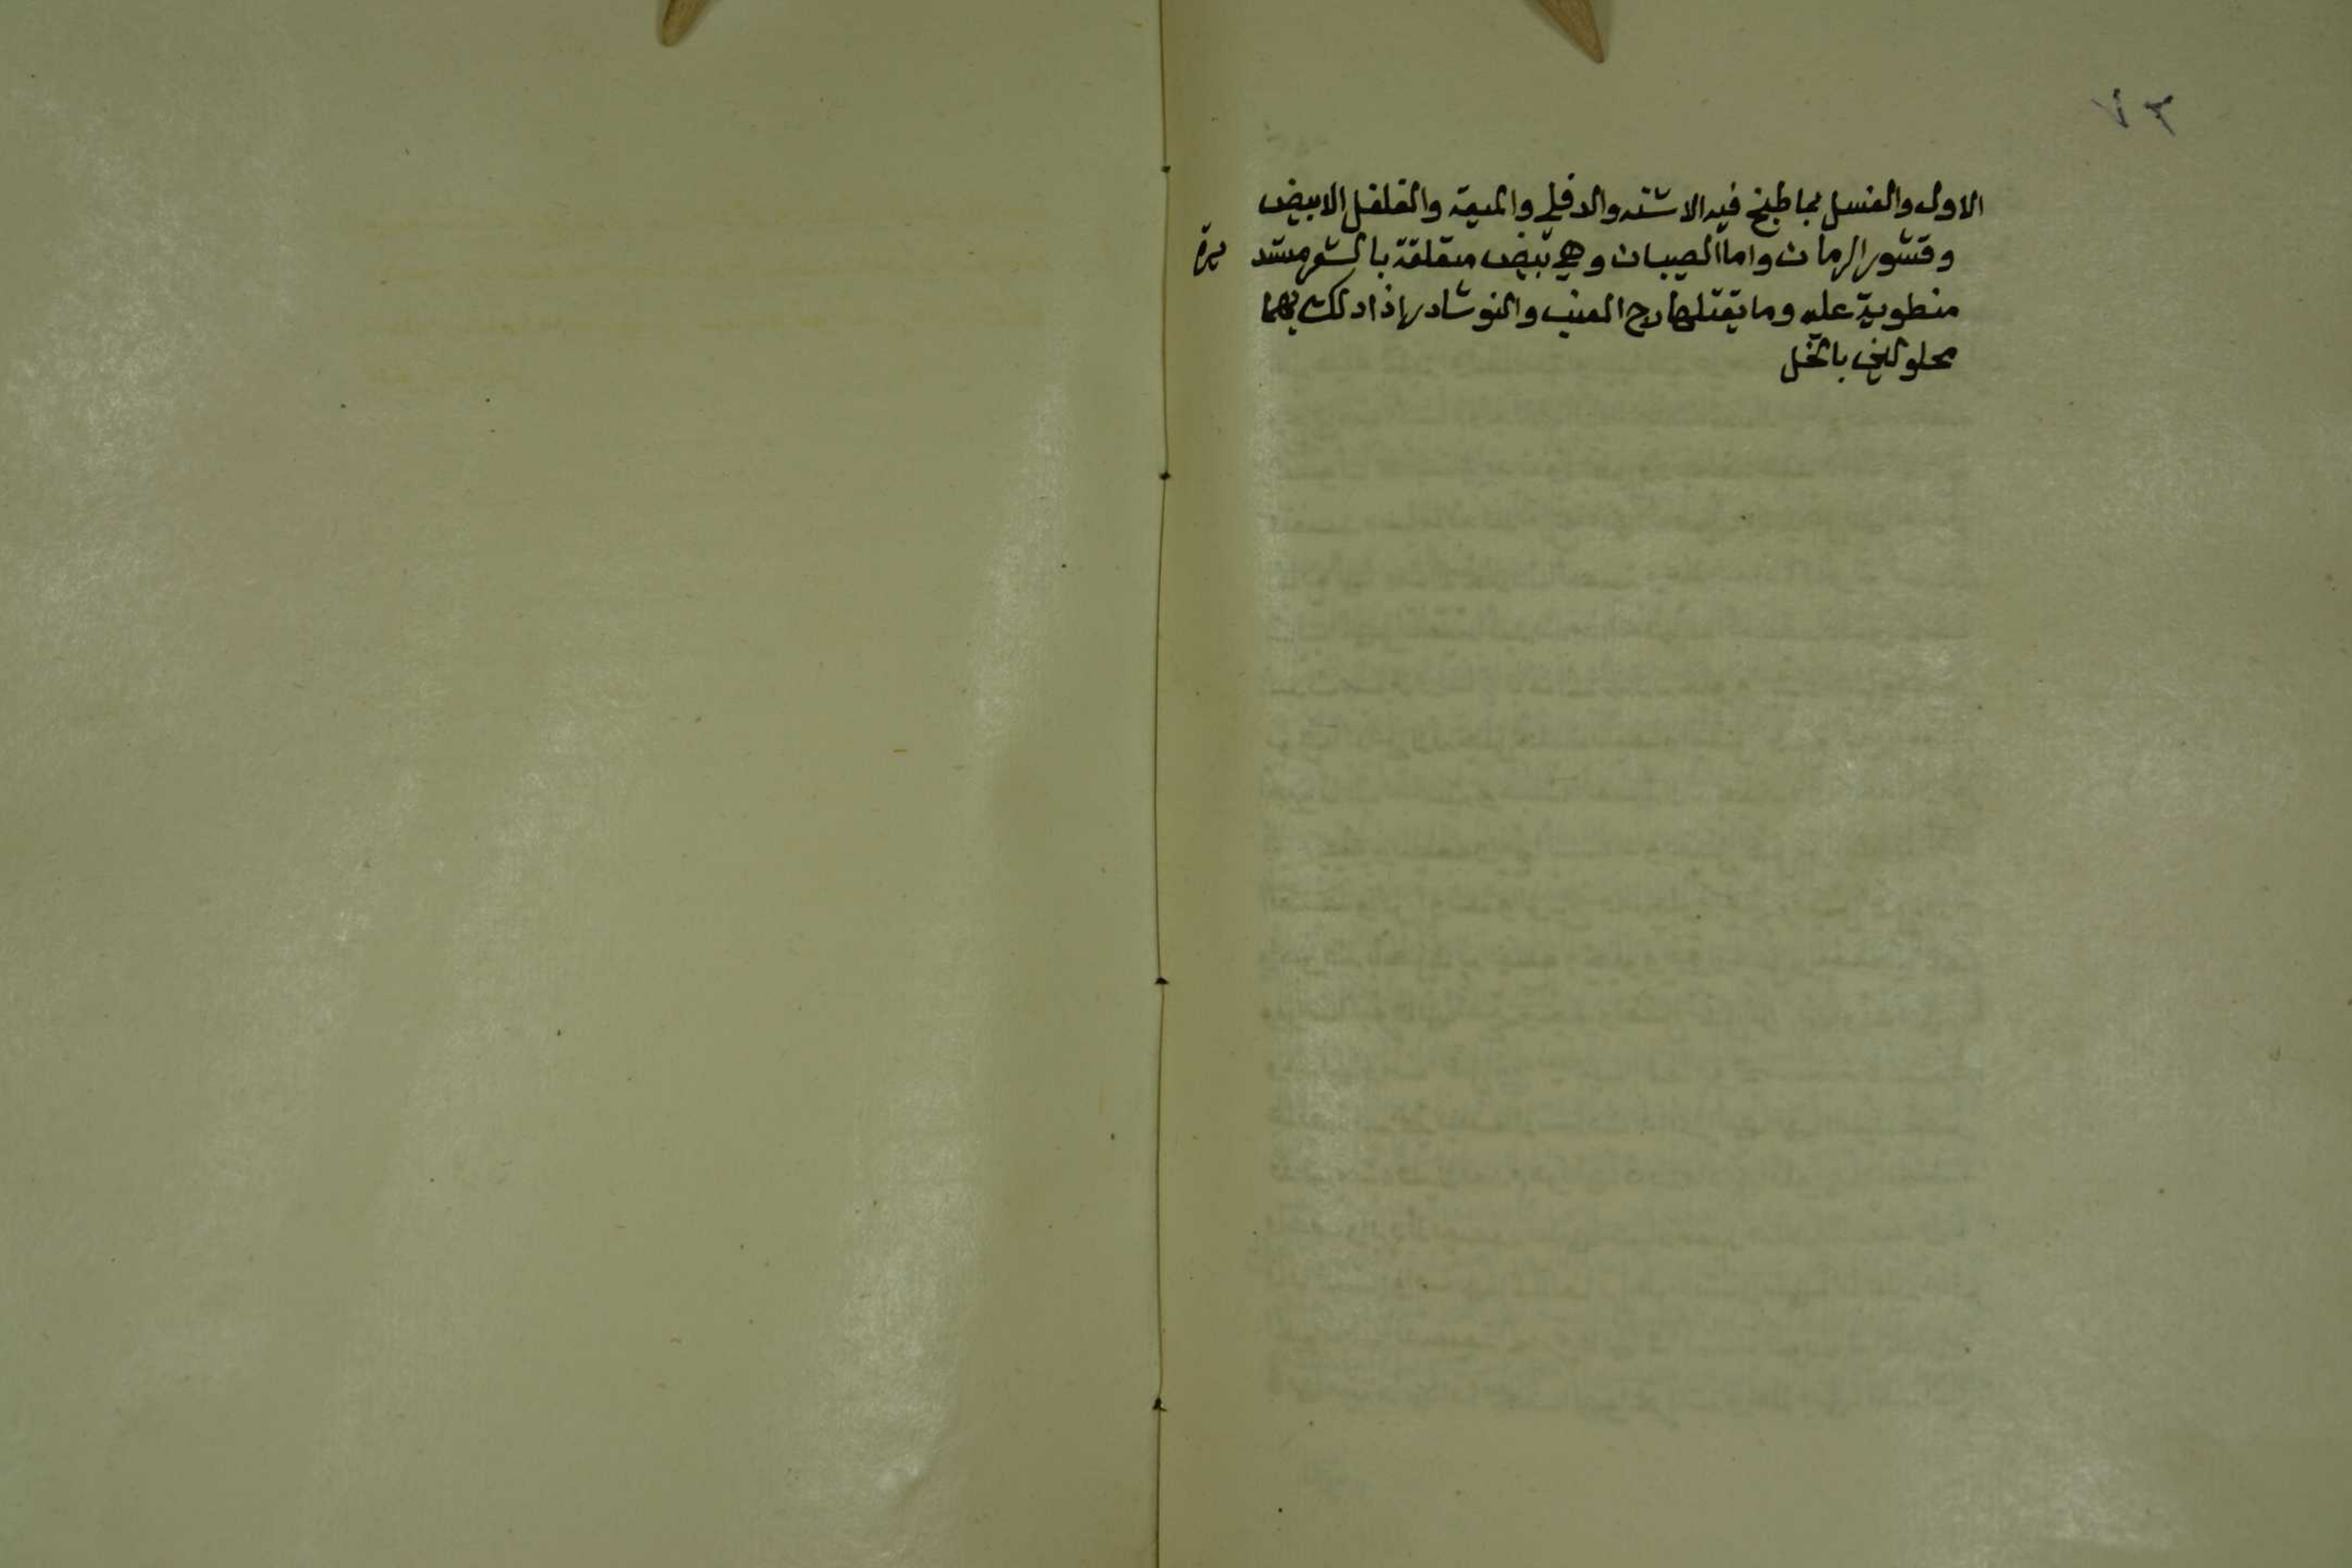 ٣٧
الاول والغسل بما طبخ فيه الاشنه والدفلى والميعة والفلفل الابيض
وقشور الرمان واما الصيبان وهي تبيض متعلقة بالشعر مستديرة
منطوية عليه وما يقتلها رج العنب والنوشادر اذا دلكت بهما
محلولين بالخل